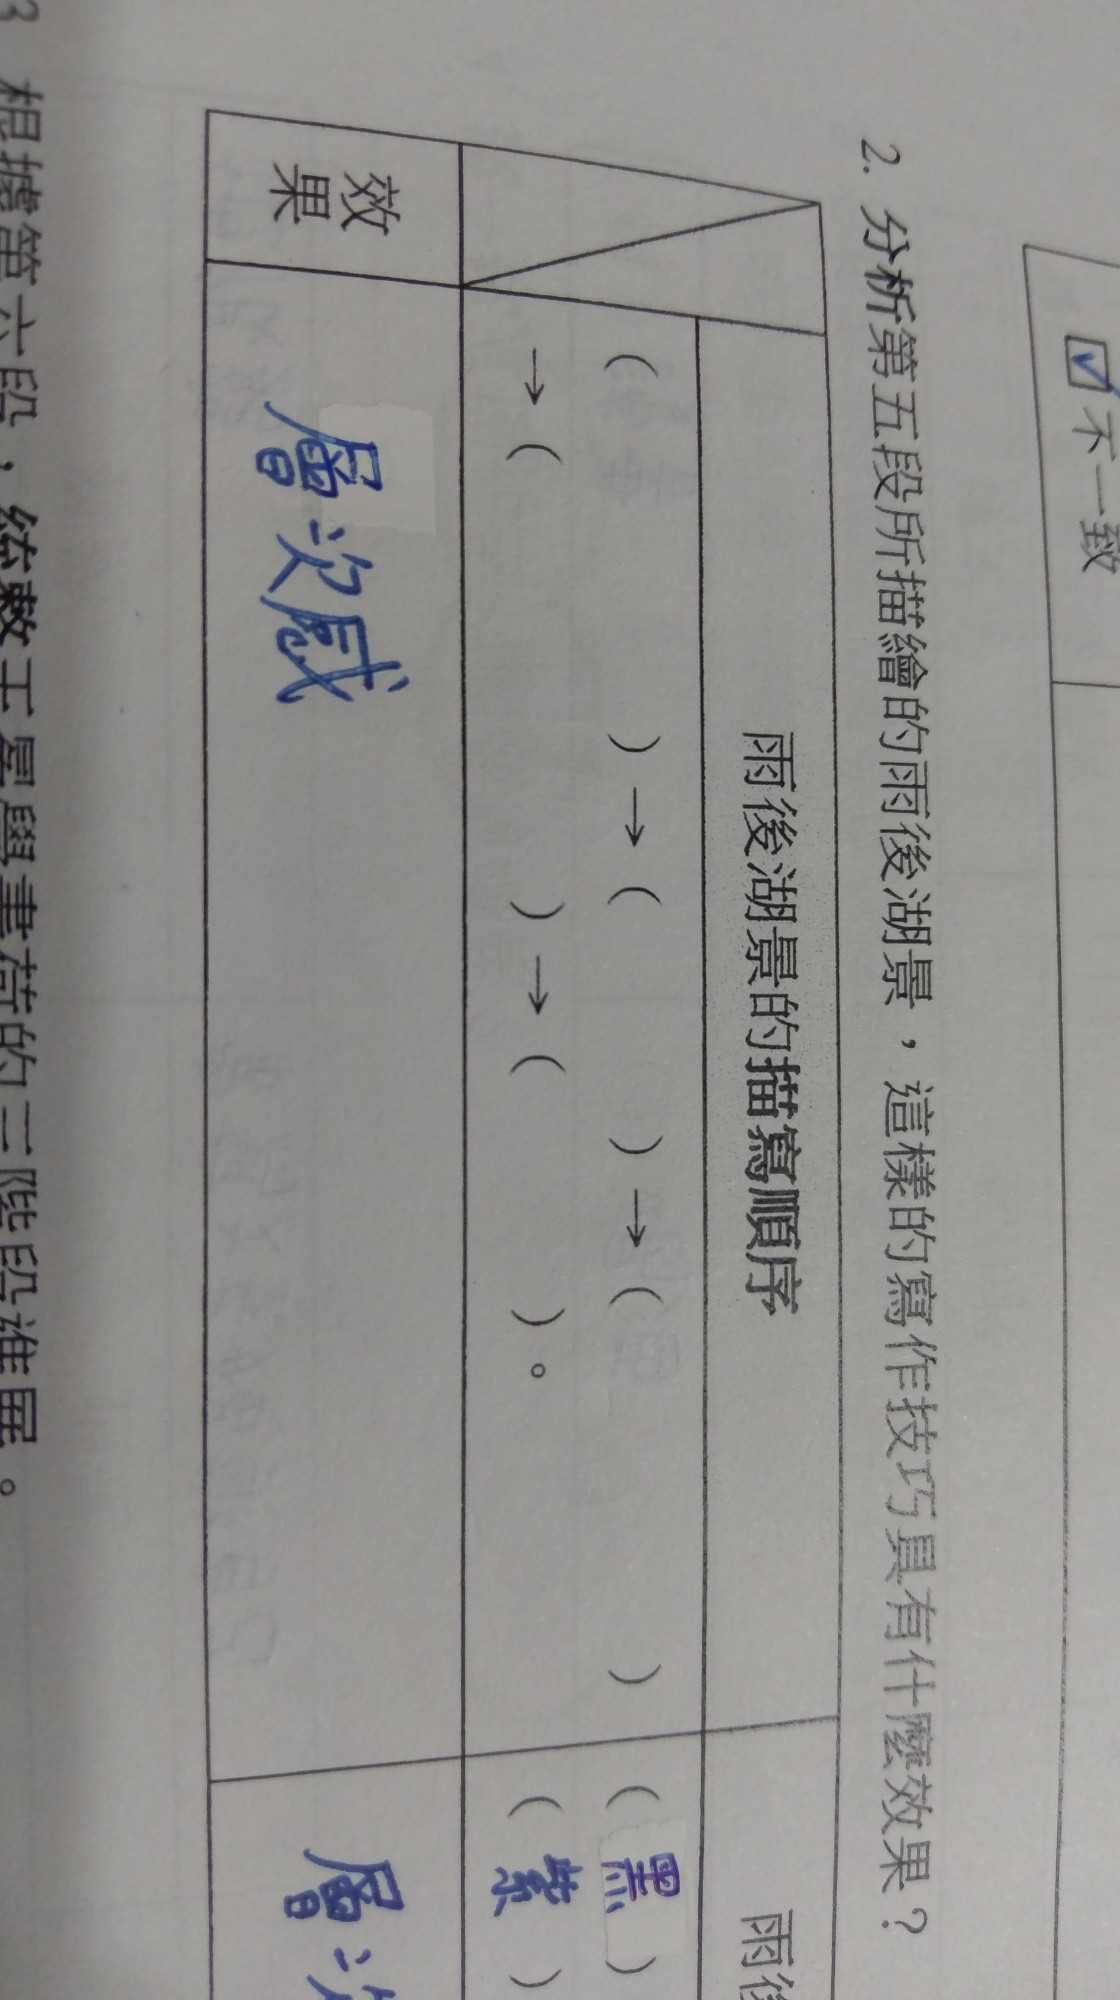 ☑不一致
2. 分析第五段所描繪的雨後湖景，這樣的寫作技巧具有什麼效果？
雨後湖景的描寫順序
雨後
(　　)→(　　)→(　　)
→(　　)→(　　)。
(黑)
(紫)
效果
層次感
層次
3 根據第六段，統整王冕學畫荷的三階段進展。